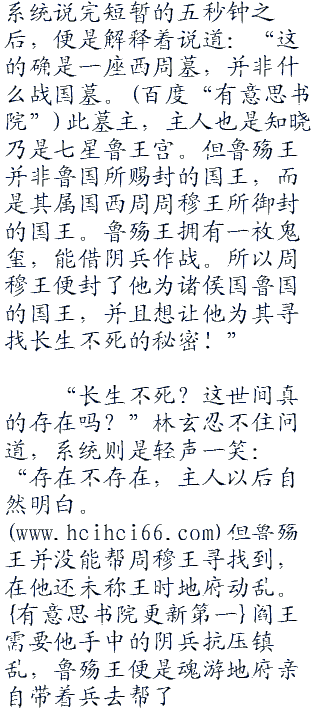 系统说完短暂的五秒钟之
后，便是解释着说道：“这
的确是一座西周墓，并非什
么战国墓。(百度“有意思书
院”)此墓主，主人也是知晓
乃是七星鲁王宫。但鲁殇王
并非鲁国所赐封的国王，而
是其属国西周周穆王所御封
的国王。鲁殇王拥有一枚鬼
玺，能借阴兵作战。所以周
穆王便封了他为诸侯国鲁国
的国王，并且想让他为其寻
找长生不死的秘密！”
“长生不死？这世间真
的存在吗？”林玄忍不住问
道，系统则是轻声一笑：
“存在不存在，主人以后自
然明白。
(www.hcihci66.com)但鲁殇
王并没能帮周穆王寻找到，
在他还未称王时地府动乱。
{有意思书院更新第一}阎王
需要他手中的阴兵抗压镇
乱，鲁殇王便是魂游地府亲
自带着兵去帮了